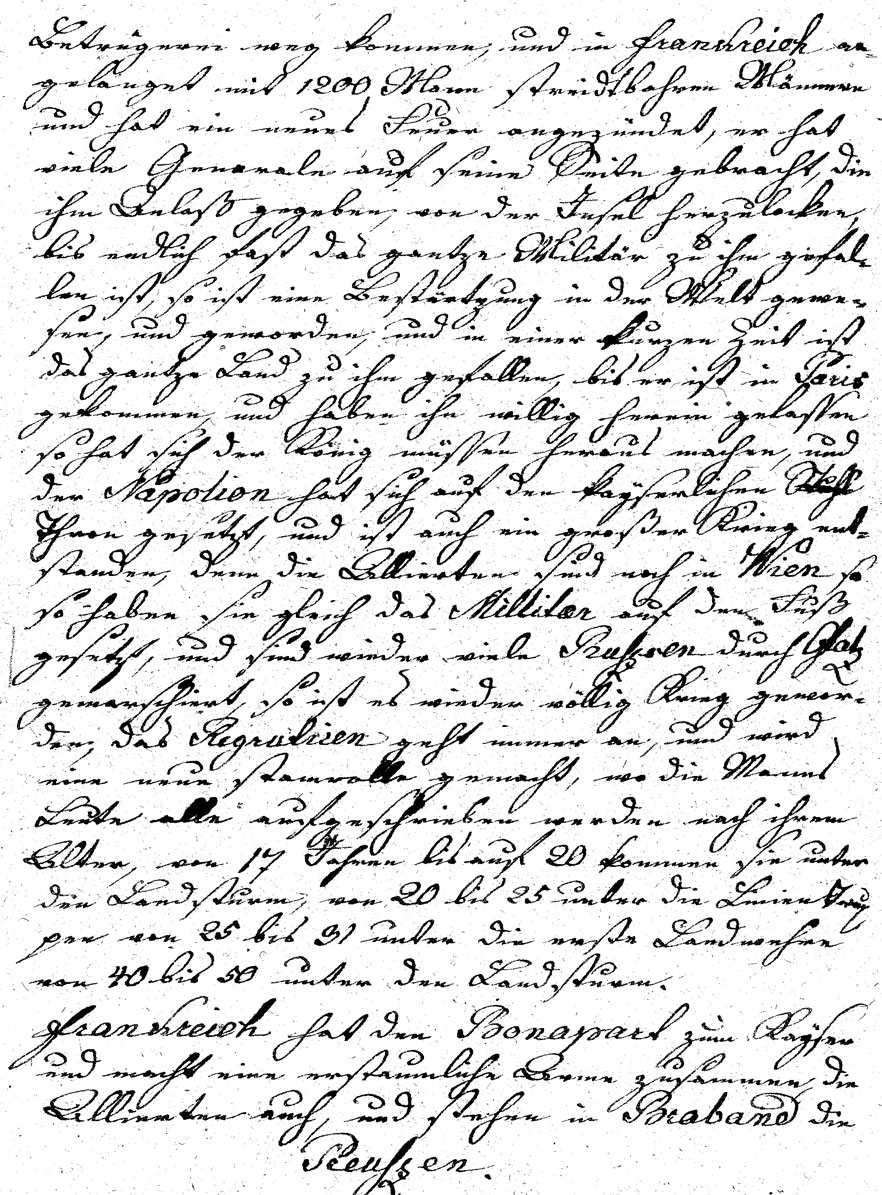 Betrügerei weg kommen, und in Franckreich an-
gelanget mit 1200 Mann streidtbahren Männern
und hat ein neues Feuer angezündet, er hat
viele Generale auf seine Seite gebracht, die
ihm Anlaß gegeben, von der Insel herzulocken,
bis endlich fast das gantze Militär zu ihm gefal-
len ist, so ist eine Bestürtzung in der Welt gewe-
sen, und geworden, und in einer kurzen Zeit ist
das gantze Land zu ihm gefallen, bis er ist in Paris
gekommen, und haben ihn willig herein gelassen
so hat sich der König müssen heraus machen, und
der Napolion hat sich auf den kayserlichen Stuhl
Thron gesetzt, und ist auch ein großer Krieg ent-
standen, denn die Allierten sind noch in Wien so
so haben sie gleich das Millitær auf den Fuß
gesetzt, und sind wieder viele Russen durch Glatz
gemarschiert, so ist es wieder völlig Krieg gewor-
den, das Regrutiren geht immer an, und wird
eine neue Stamrolle gemacht, wo die Manns
Leute alle aufgeschrieben werden nach ihrem
Alter, von 17 Jahren bis auf 20 kommen sie unter
den Landsturm, von 20 bis 25 unter die Linien Trup
pen von 25 bis 31 unter die erste Landwehre
von 40 bis 50 unter den Landsturm.
Franckreich hat den Bonapart zum Kayser
und macht eine erstaunliche Arme zusammen, die
Allierten auch, und stehen in Braband die
Preussen.